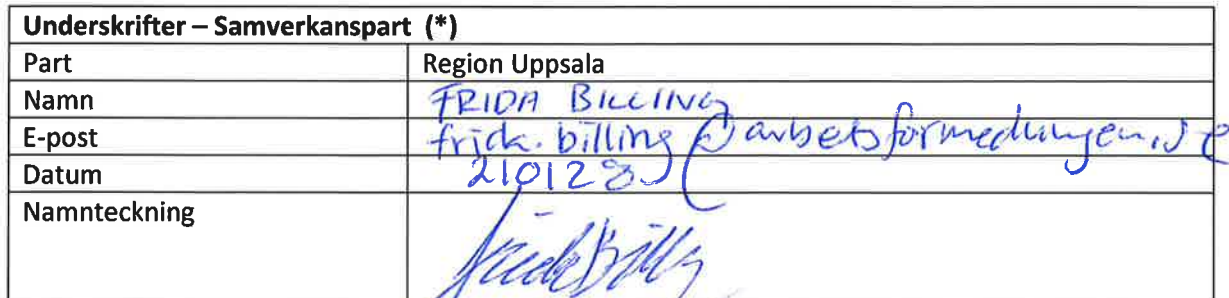 Underskrifter – Samverkanspart (*)
Part Region Uppsala
Namn FRIDA BILLING
E-post frida.billing@arbetsformedlingen.se
Datum 210128
Namnteckning Frida Billing